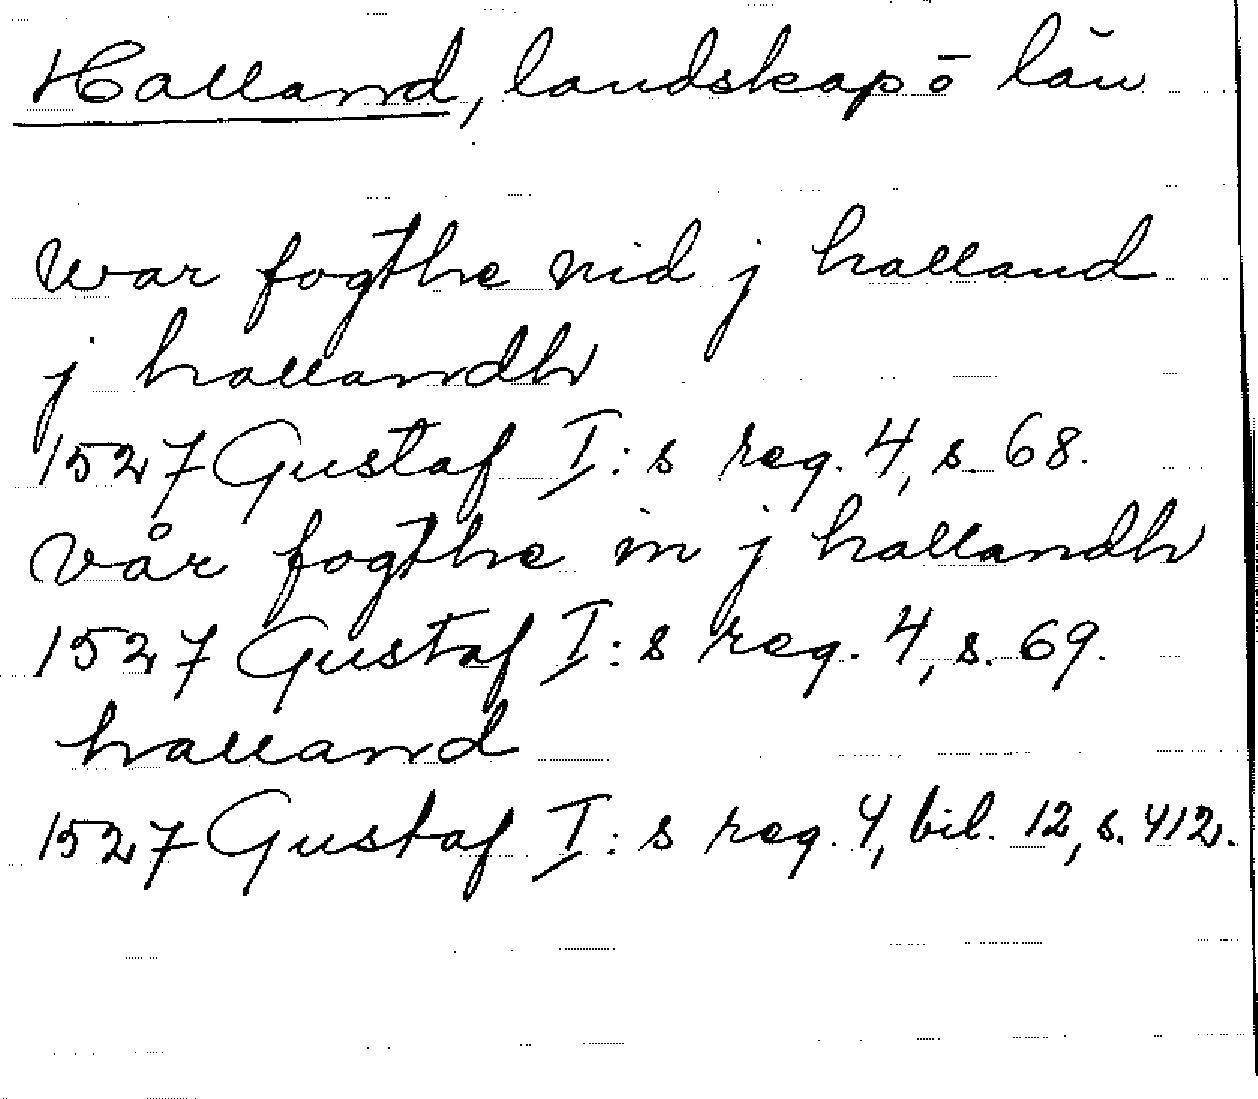 Halland, landskap o län
war fogthe nid j halland
j hallandh
1527 Gustaf I:s reg. 4, s. 68.
vår fogthe in j hallandh
1527 Gustaf I:s reg. 4, s. 69.
halland
1527 Gustaf I:s reg. 4, bil. 12, s. 412.